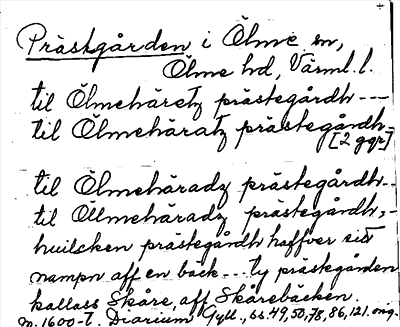 Prästgården i Ölme sn,
Ölme hd, Värml. l.
til Ölmehäretz prästegårdh ---
til Ölmehäratz prästegårdh-
[2 ggr]
til Ölmehäradz prästegårdh--
til Öllmehäradz prästegårdh,-
huilcken prästegårdh haffver sitt
nampn aff en bäck --- ty prästegården
kallass Skåre, aff Skårebäcken.
m. 1600-t. Diarium Gyll., ss. 49, 50, 78, 86, 121. orig.